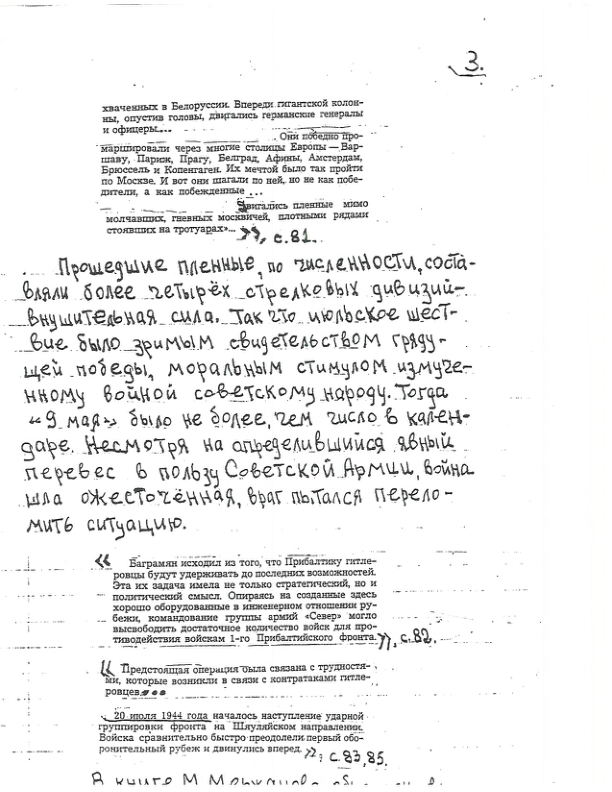 3.
хваченных в Белоруссии. Впереди гигантской колон-
ны, опустив головы, двигались германские генералы
и офицеры...
Они победно про-
маршировали через многие столицы Европы — Вар-
шаву, Париж, Прагу, Белград, Афины, Амстердам,
Брюссель и Копенгаген. Их мечтой было так пройти
по Москве. И вот они шагали по ней, но не как побе-
дители, а как побежденные ...
Двигались пленные мимо
молчавших, гневных москвичей, плотными рядами
стоявших на тротуарах»... », с.81.
Прошедшие пленные, по численности, соста-
вляли более четырёх стрелковых дивизий-
внушительная сила. Так что июльское шест-
вие было зримым свидетельством гряду-
щей победы, моральным стимулом измуче-
нному войной советскому народу. Тогда
«9 мая» было не более, чем число в кален-
даре. Несмотря на определившийся явный
перевес в пользу Советской Армии, война
шла ожесточённая, враг пытался перело-
мить ситуацию.
« Баграмян исходил из того, что Прибалтику гитле-
ровцы будут удерживать до последних возможностей.
Эта их задача имела не только стратегический, но и
политический смысл. Опираясь на созданные здесь
хорошо оборудованные в инженерном отношении ру-
бежи, командование группы армий «Север» могло
высвободить достаточное количество войск для про-
тиводействия войскам 1-го Прибалтийского фронта. », с.82.
« Предстоящая операция была связана с трудностя-
ми, которые возникли в связи с контратаками гитле-
ровцев...
20 июля 1944 года началось наступление ударной
группировки фронта на Шяуляйском направлении.
Войска сравнительно быстро преодолели первый обо-
ронительный рубеж и двинулись вперед. », с.83,85.
В книге М.